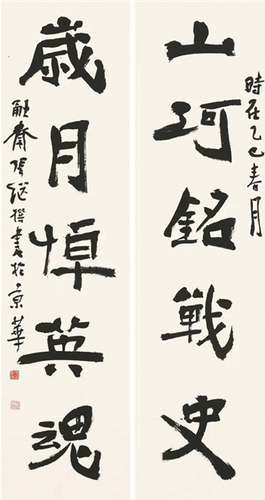 山河銘戰史
時在乙巳春月
歲月悼英魂
觚齋陽繼撰書於京華